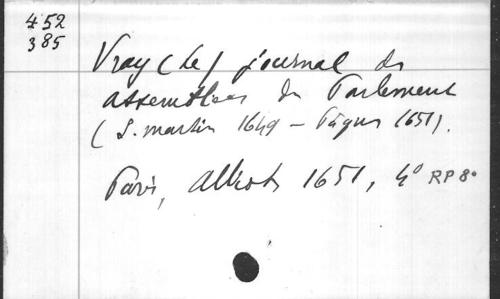 452
385
Vray (Le) journal des
assemblées du Parlement
(S. martin 1649 – Pâques 1651).
Paris, Alliot, 1651, 4° RP 8°